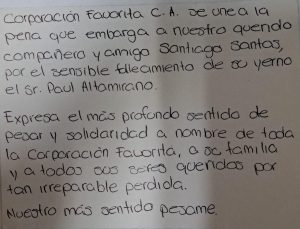 Corporación Favorita C.A. se une a la
pena que embarga a nuestro querido
compañero y amigo Santiago Santos,
por el sensible fallecimiento de su yerno
el Sr. Paul Altamirano.
Expresa el más profundo sentido de
pesar y solidaridad a nombre de toda
la Corporación Favorita, a su familia
y a todos sus seres queridos por
tan irreparable perdida.
Nuestro más sentido pesame.